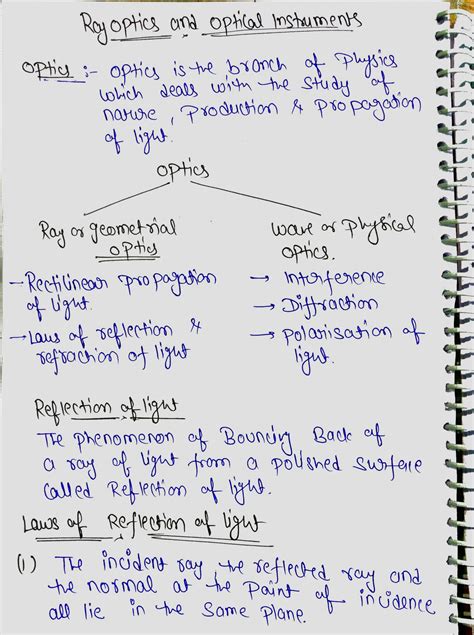 Ray optics and optical Instruments
Optics :- Optics is the branch of Physics
which deals with the study of
nature, Production & Propagation
of light.
Optics
Ray or geometrial
optics
wave or Physical
optics.
- Rectilinear propagation
of light.
→ Laws of reflection &
refraction of light
→ Interference
→ Diffraction
→ Polarisation of
light.
Reflection of light
The phenomenon of Bouncing Back of
a ray of light from a polished surface
called Reflection of light.
Laws of Reflection of light
(1) The incident ray, the reflected ray and
the normal at the Point of incidence
all lie in the Same plane.